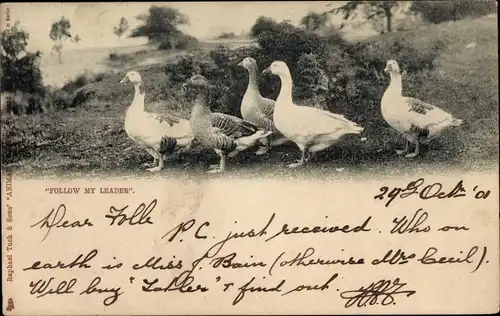 "FOLLOW MY LEADER."
29th Oct '01
Dear Folle
P.C. just received. Who on
earth is Miss J. Bain (otherwise Mrs Cecil).
Will buy " " & find out.
Raphael Tuck & Sons' "ANIMAL